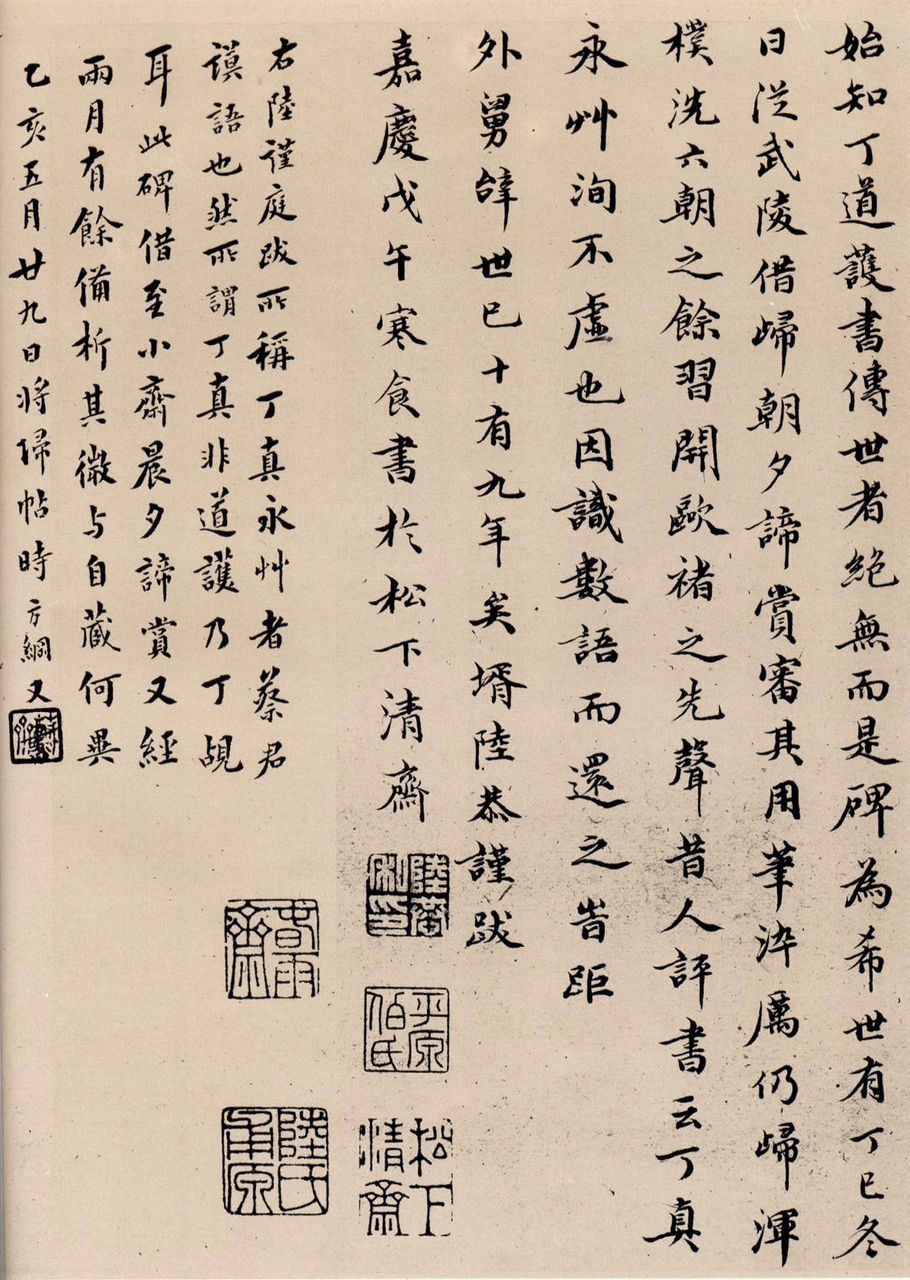 始知丁道護書傳世者絕無而是碑為希世有丁巳冬
日從武陵借歸朝夕諦賞審其用筆淬厲仍歸渾
樸洗六朝之餘習開歐褚之先聲昔人評書云丁真
永艸洵不虛也因識數語而還之峕距
外舅辥世已十有九年矣壻陸恭謹跋
嘉慶戊午寒食書於松下清齋
右陸謹庭跋所稱丁真永艸者蔡君
謨語也然所謂丁真非道護乃丁覘
耳此碑借至小齋晨夕諦賞又經
兩月有餘備析其微与自藏何異
乙亥五月廿九日將歸帖時方綱又
平原伯氏
松下清齋
春雨齋